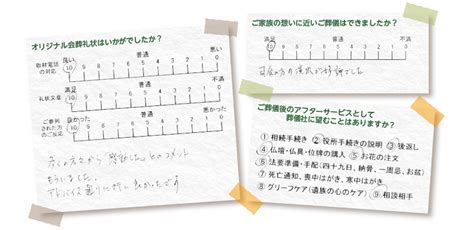 オリジナル会葬礼状はいかがでしたか？
取材電話の対応
良い 普通 悪い
10 9 8 7 6 5 4 3 2 1 0
礼状文章
満足 普通 不満
10 9 8 7 6 5 4 3 2 1 0
ご参列された方のご反応
良かった 普通 悪かった
10 9 8 7 6 5 4 3 2 1 0
とのコメント
もらいました。
アドバイス通りに
良かったです
ご家族の想いに近いご葬儀はできましたか？
満足 普通 不満
10 9 8 7 6 5 4 3 2 1 0
司会の方の
好評でした
ご葬儀後のアフターサービスとして
葬儀社に望むことはありますか？
① 相続手続き ② 役所手続きの説明 ③ 後返し
④ 仏壇・仏具・位牌の購入 ⑤ お花の注文
⑥ 法要準備・手配（四十九日、納骨、一周忌、お盆）
⑦ 死亡通知、喪中はがき、寒中はがき
⑧ グリーフケア（遺族の心のケア） ⑨ 相談相手